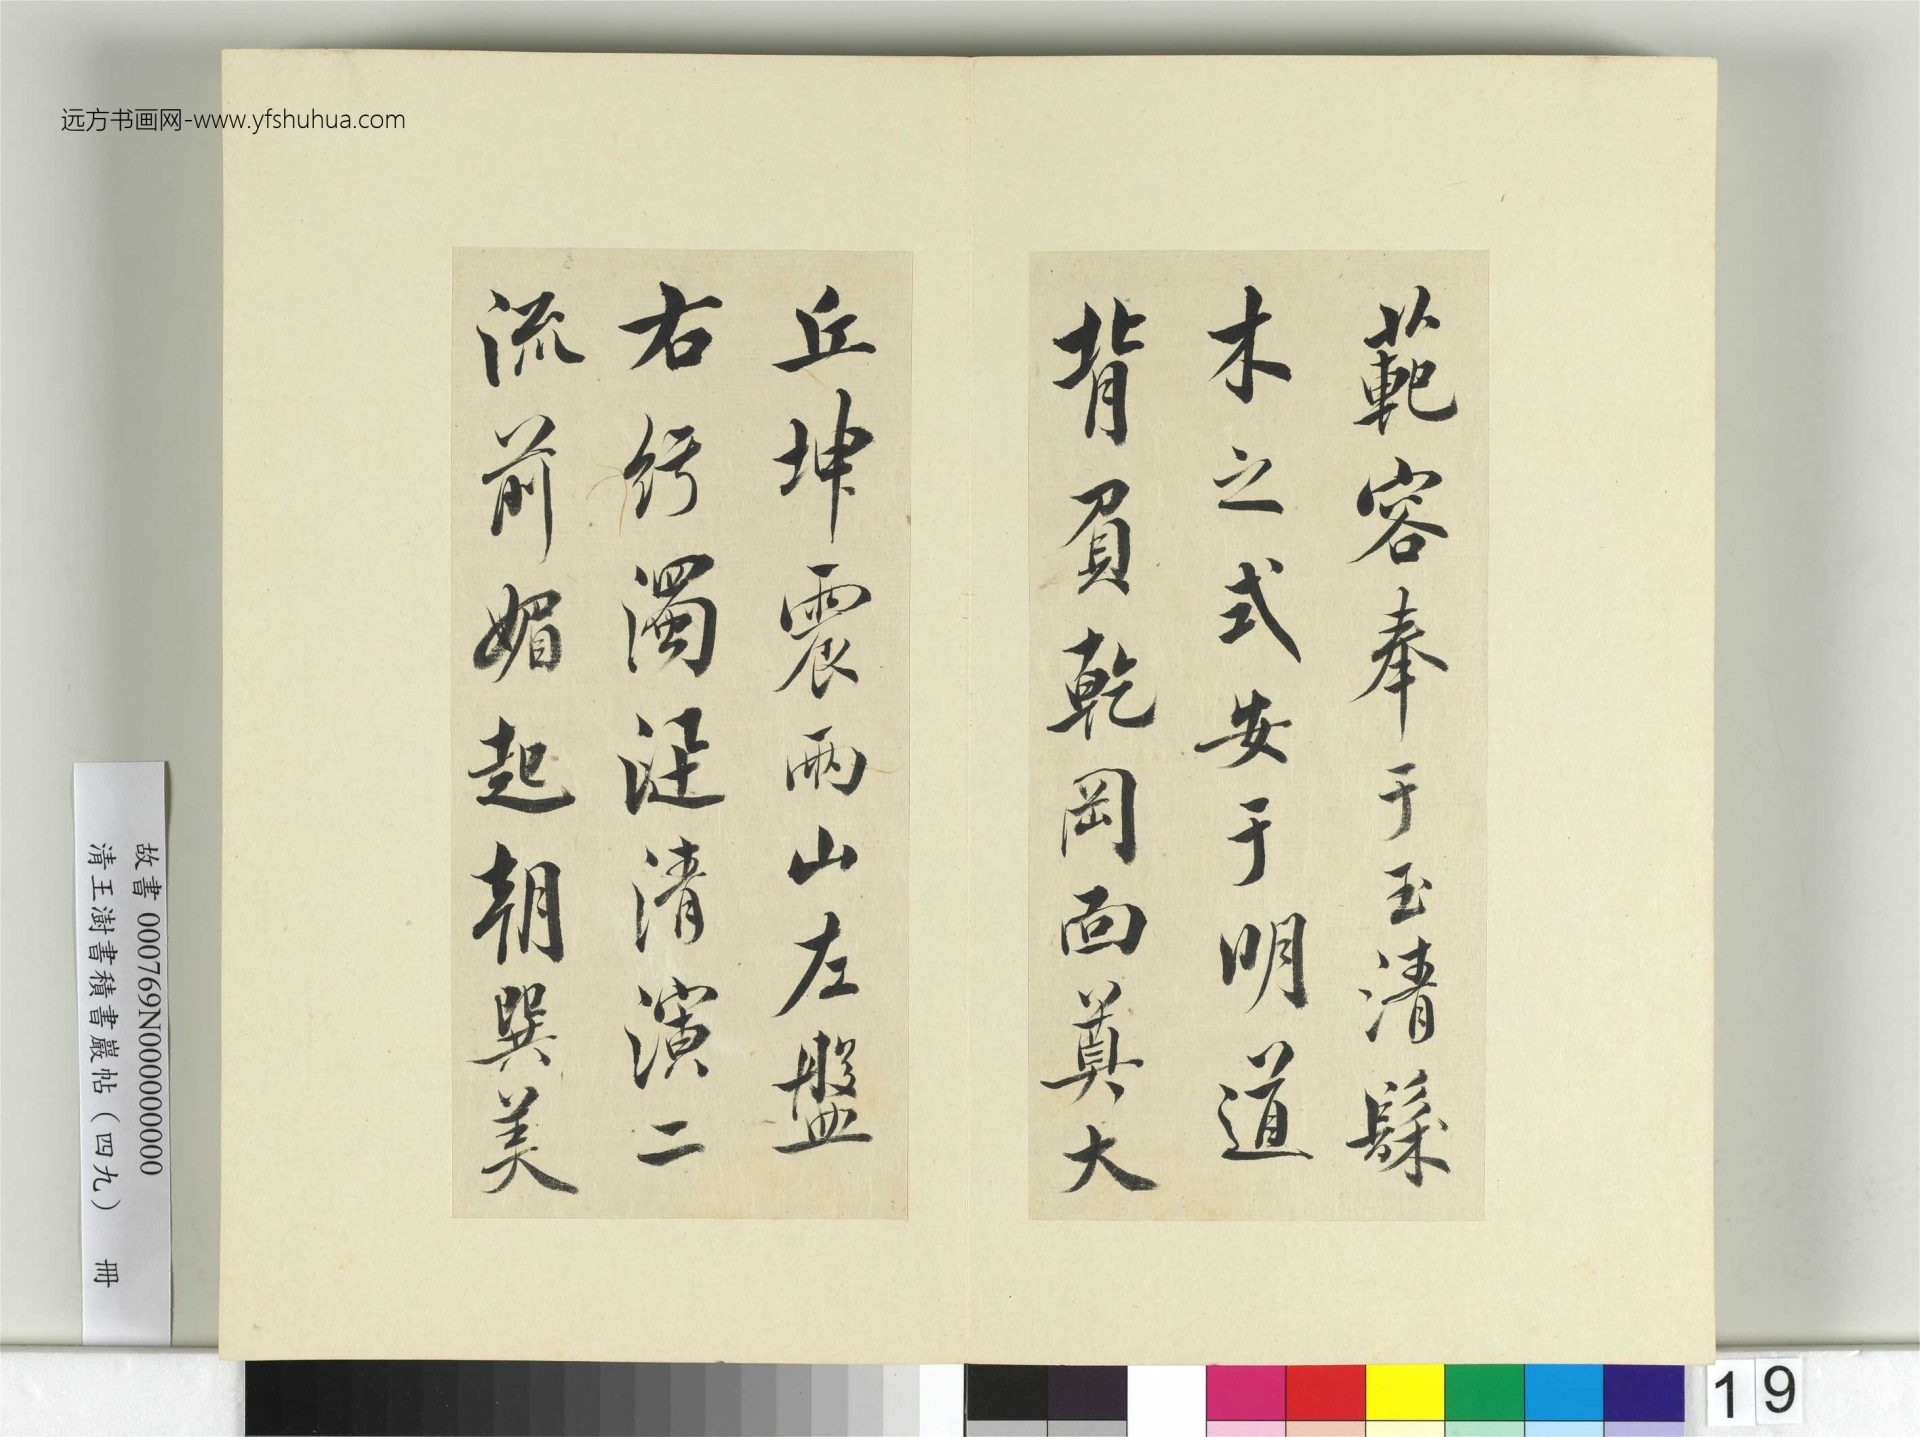 远方书画网-www.yfshuhua.com
範容奉于玉清髹
木之式安于明道
背負乾岡面奠大
丘坤震兩山左盤
右紆濁涇清濱二
流前媚起朝巽美
故書 000769N000000000
清王澍書積書巖帖（四九） 冊
19